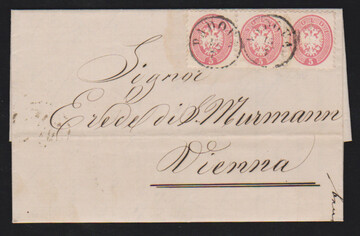 PADOVA
5 5 5
Signor
Erede di S. Murmann
Vienna